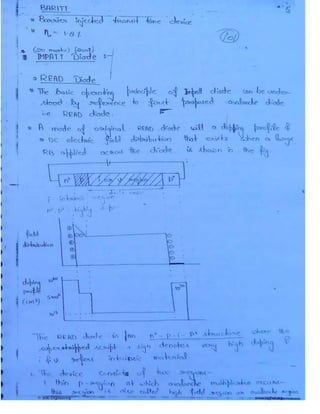 BARITT
Barrier injected transit time device
IMPATT Diode :-
READ Diode
The Basic operating principle of Impatt diode can be under-
stood by reference to first proposed avalanche diode
i.e. READ diode.
A mode of original READ diode with a doping profile &
DC electric field distribution that exists when a large
RB applied across the diode is shown in the fig
n+
P
P+
i - intrinsic region
field
distribution
doping
profile
(cm³)
The READ diode is from n+ - p - i - P+ structure where the
superscripted script + sign denotes very high doping &
i & refers intrinsic material
1. The device consists of two region -
1. thin p-region at which avalanche multiplication occurs -
this region is also called high field region or avalanche region